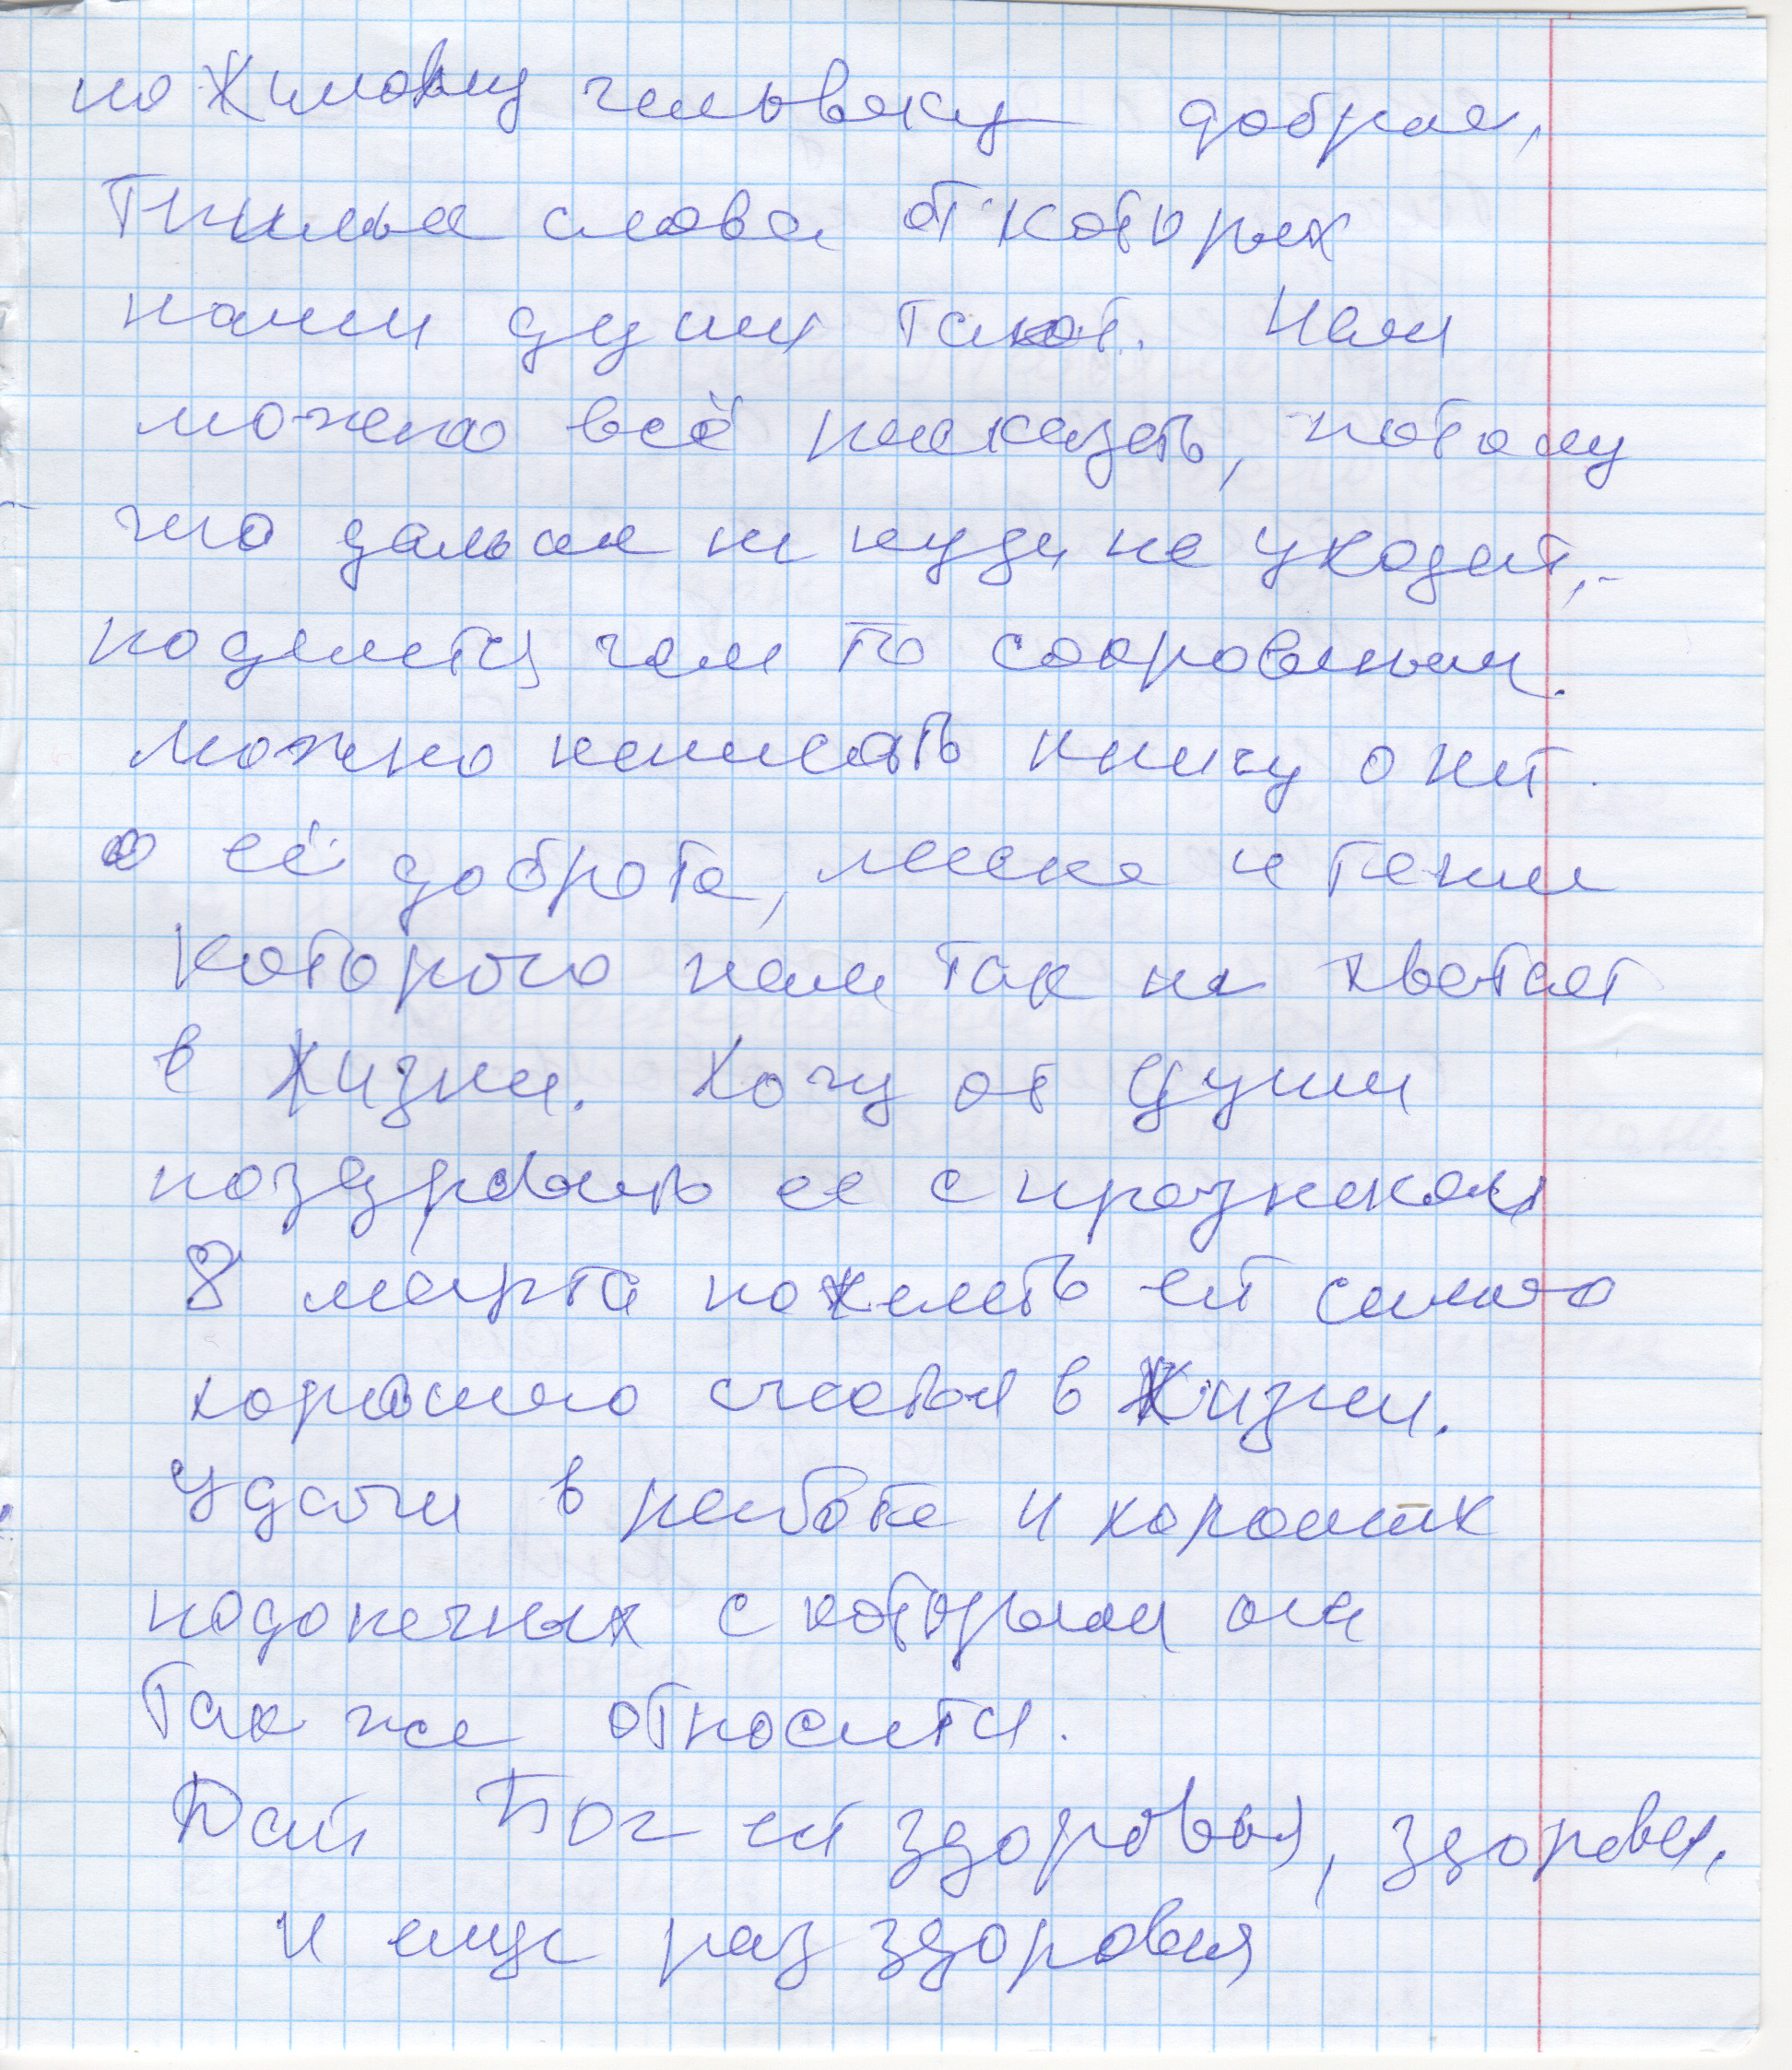 пожиловму человеку добрые,
тёплые слова от которых
наши души тают. Нам
можно всё рассказать, потому
что дальше ни куда не уходит,
поделится чем то сокровеным.
можно написать книгу о ней.
о её доброта, ласка и тепле
которого нам так не хватает
в жизни. Хочу от души
поздравить ее с празником
8 марта пожелать ей самого
хорошего счастья в жизни.
Удачи в работе и хороших
подопечных с которыми она
так же относится.
Дай Бог ей здоровья, здоровья,
и еще раз здоровия